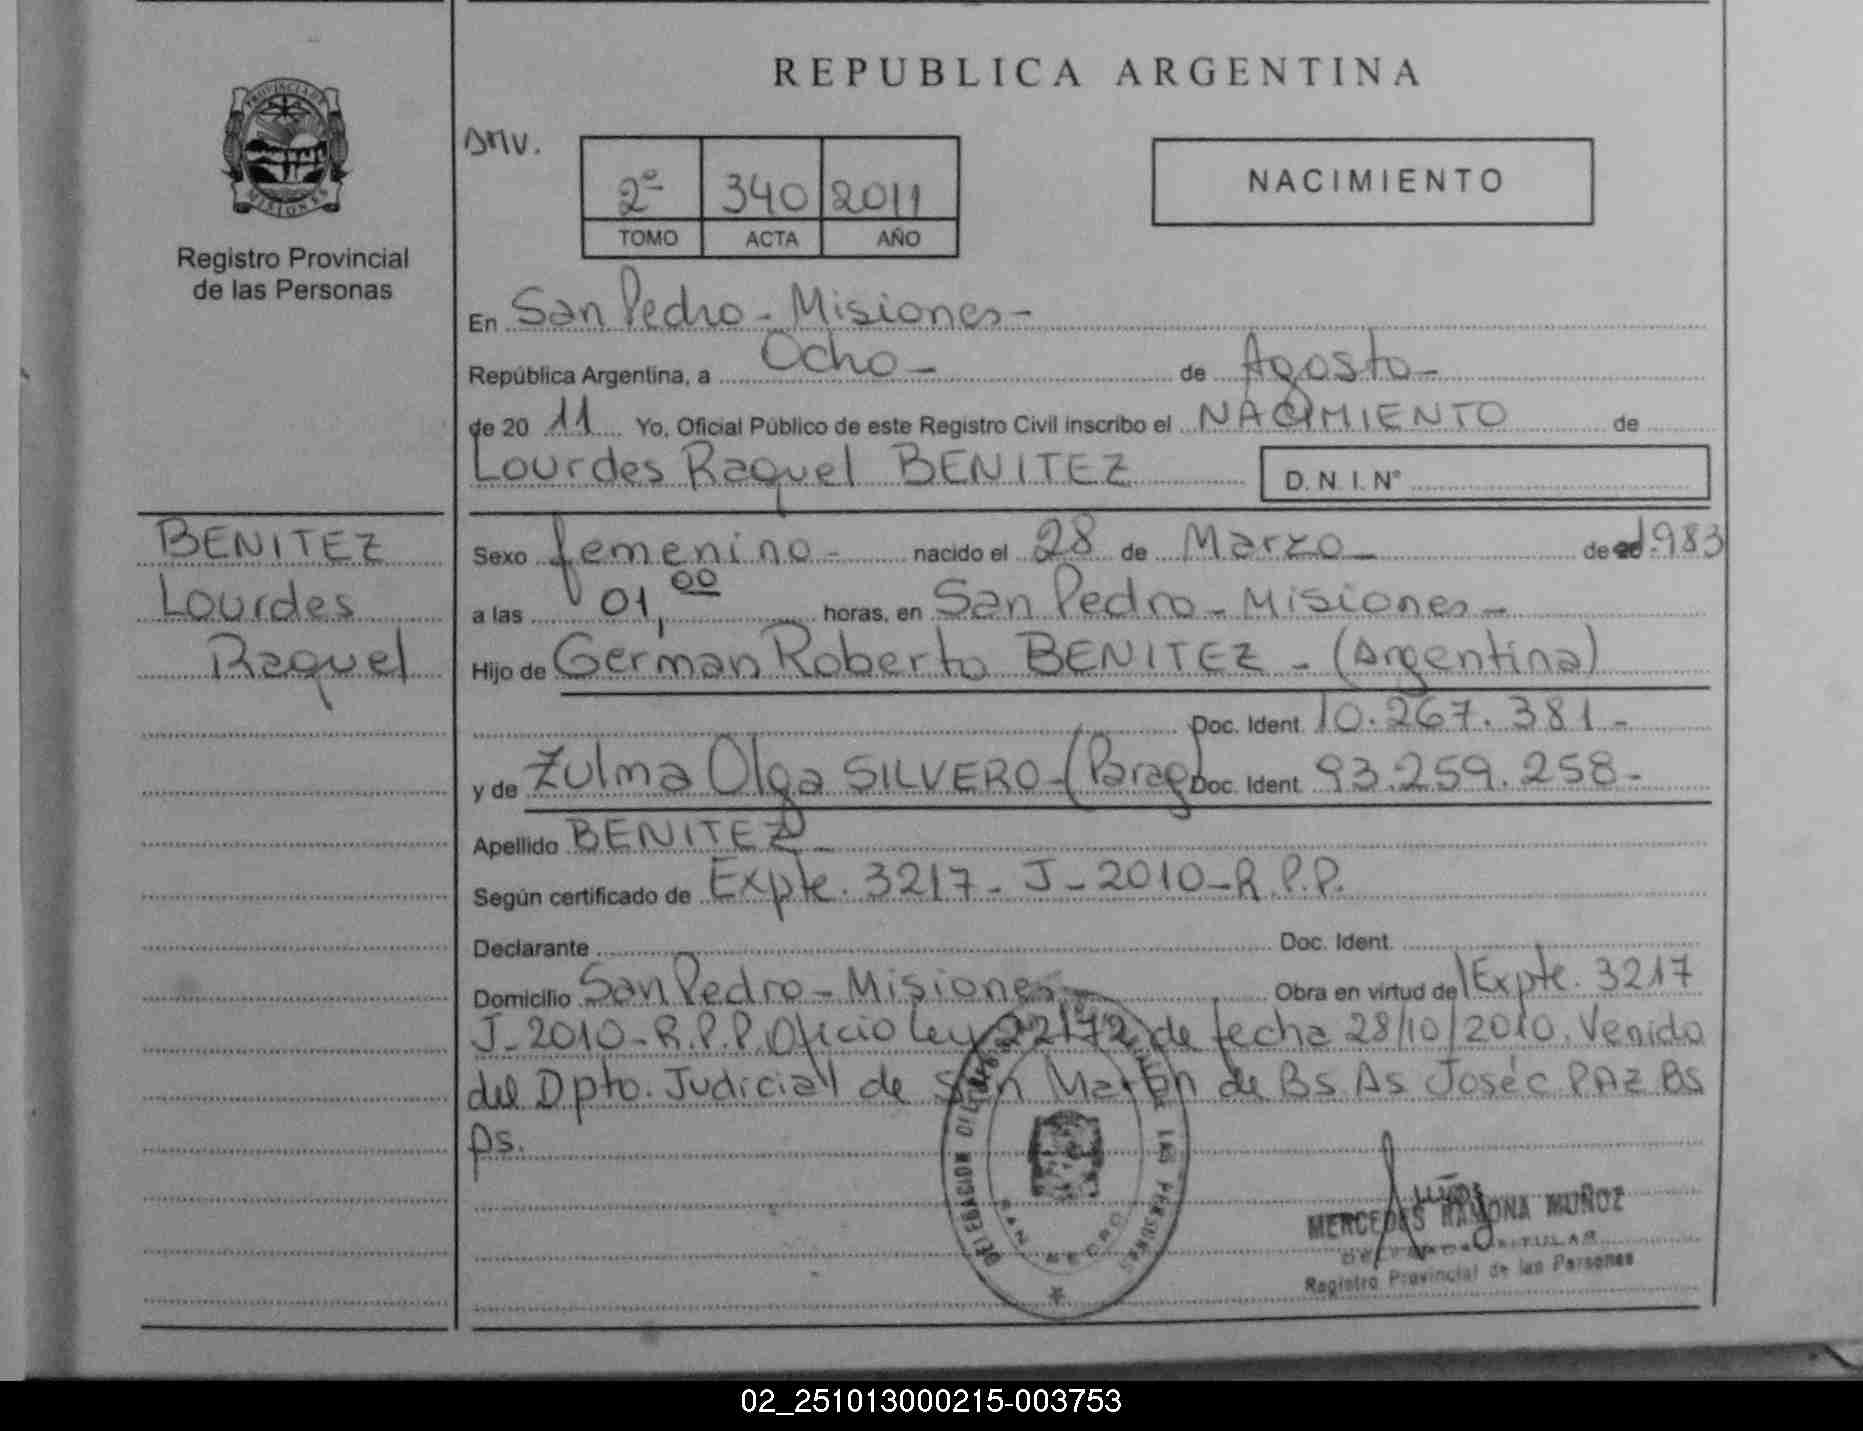 REPUBLICA ARGENTINA
PROVINCIA DE
MISIONES
Registro Provincial
de las Personas
DMV.
2º 340 2011
TOMO ACTA AÑO
NACIMIENTO
En San Pedro - Misiones -
República Argentina, a Ocho - de Agosto -
de 20 11 Yo, Oficial Público de este Registro Civil inscribo el NACIMIENTO de
Lourdes Raquel BENITEZ D.N.I. Nº
BENITEZ
Lourdes
Raquel
Sexo femenino - nacido el 28 de Marzo - de 1.983
a las 01,00 horas, en San Pedro - Misiones -
Hijo de German Roberto BENITEZ - (Argentina)
Doc. Ident. 10.267.381 -
y de Zulma Olga SILVERO - (Parag) Doc. Ident. 93.259.258 -
Apellido BENITEZ -
Según certificado de Expte. 3217 - J - 2010 - R.P.P.
Declarante Doc. Ident.
Domicilio San Pedro - Misiones - Obra en virtud del Expte. 3217
J - 2010 - R.P.P. Oficio Ley 22172 de fecha 28/10/2010. Venido
del Dpto. Judicial de San Martin de Bs As José C PAZ Bs
As.
LAS PERSONAS
SAN PEDRO
MERCEDES RAMONA MUÑOZ
TITULAR
Registro Provincial de las Personas
02_251013000215-003753